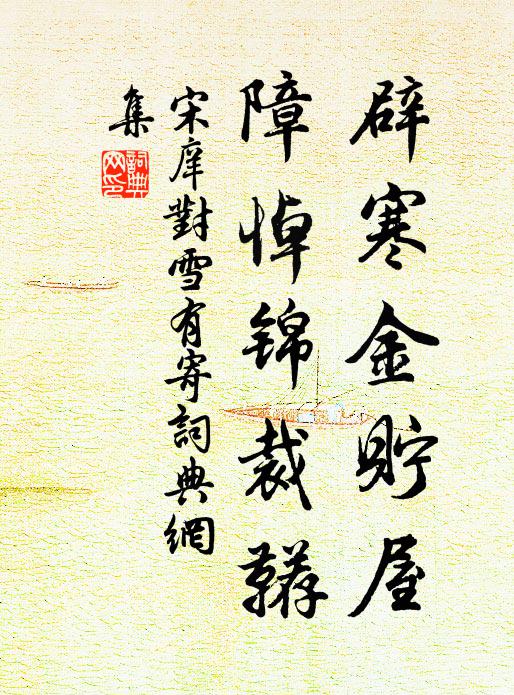 辟寒金貯屋
障悼錦裁韉
宋庠對雪有寄詞典網
集
詞典網印